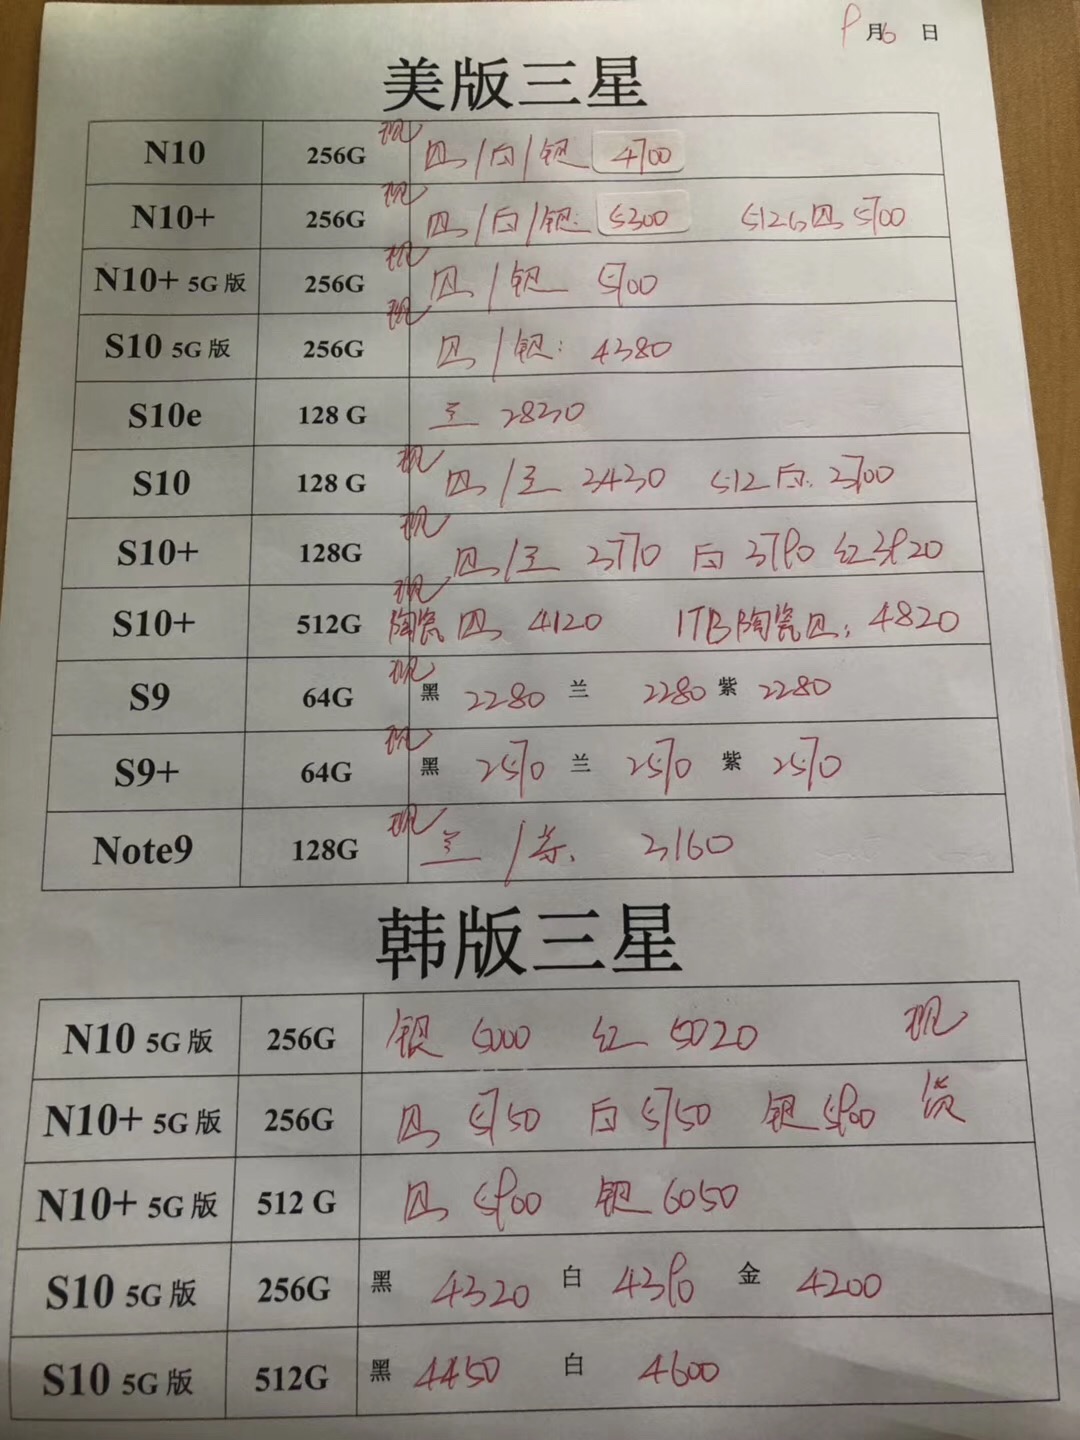 9月6日
美版三星
N10 256G 现 黑/白/银 4700
N10+ 256G 现 黑/白/银: 5300 512G黑 5700
N10+ 5G版 256G 现 黑/银 5700
S10 5G版 256G 现 黑/银: 4380
S10e 128 G 兰 2820
S10 128 G 现 黑/兰 3430 512白. 3700
S10+ 128G 现 黑/兰 3770 白 3790 红 3920
S10+ 512G 现 陶瓷黑 4120 1TB陶瓷黑: 4820
S9 64G 现 黑 2280 兰 2280 紫 2280
S9+ 64G 现 黑 2570 兰 2570 紫 2570
Note9 128G 现 兰/紫. 3160
韩版三星
N10 5G版 256G 银 5000 红 5020 现
N10+ 5G版 256G 黑 5750 白 5750 银 5900 货
N10+ 5G版 512 G 黑 5900 银 6050
S10 5G版 256G 黑 4320 白 4390 金 4200
S10 5G版 512G 黑 4450 白 4600